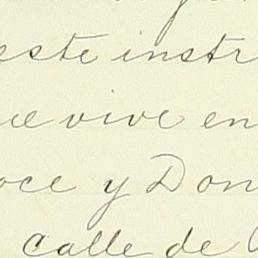 este instr
ce vive en
oce y Don
calle de